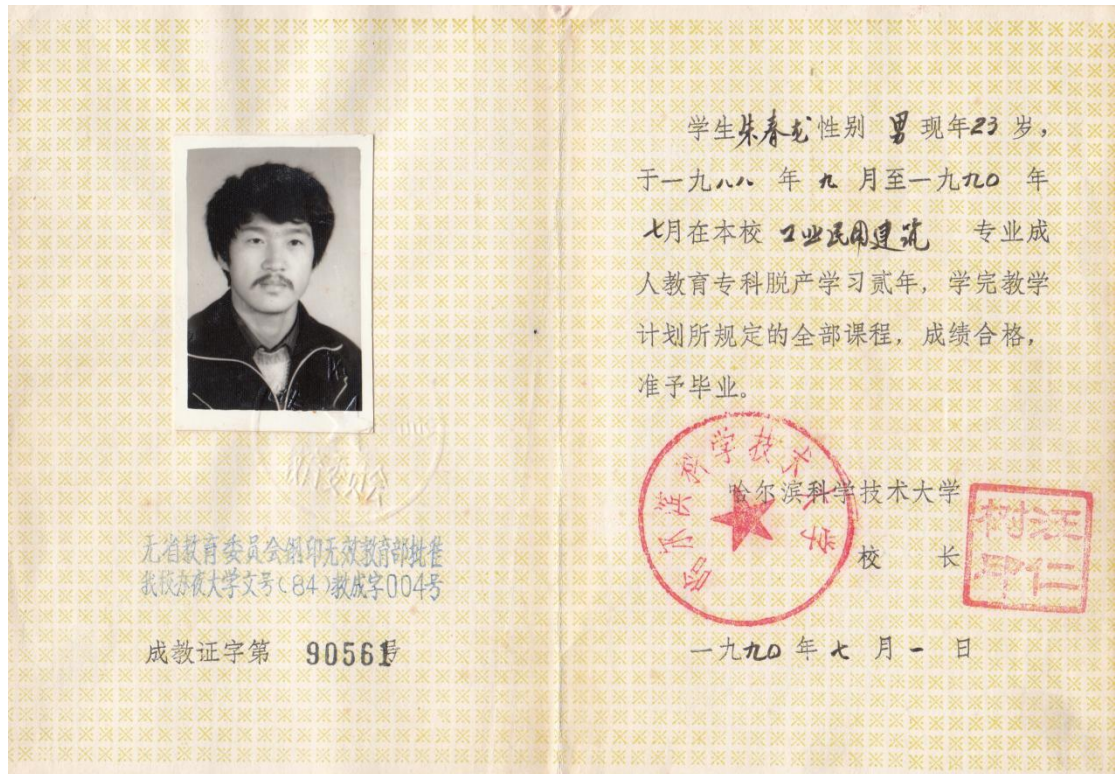 无省教育委员会钢印无效教育部批准
我校办夜大学文号(84)教成字004号
成教证字第 90561号
学生朱春龙性别 男 现年23 岁,
于一九八八 年 九 月至一九九〇 年
七月在本校 工业民用建筑 专业成
人教育专科脱产学习贰年, 学完教学
计划所规定的全部课程, 成绩合格,
准予毕业。
哈尔滨科学技术大学
哈尔滨科学技术大学
校 长
一九九〇 年 七 月 一 日